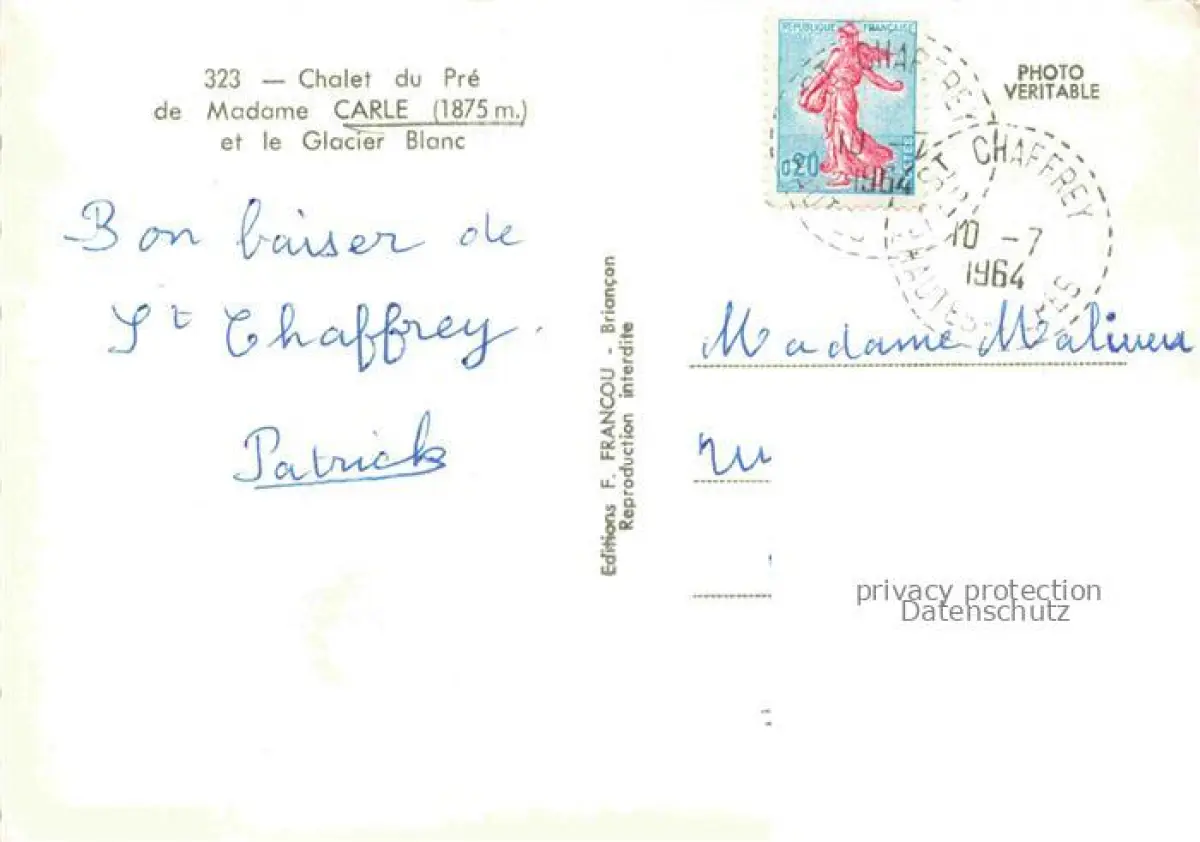 323 — Chalet du Pré
de Madame CARLE (1875 m.)
et le Glacier Blanc
Bon baiser de
St Chaffrey.
Patrick
Editions F. FRANCOU - Briançon
Reproduction interdite
REPUBLIQUE FRANÇAISE
0,20
CHAFFREY
10
1964
PHOTO
VERITABLE
ST CHAFFREY
10 - 7
1964
HAUTES
Madame
privacy protection
Datenschutz